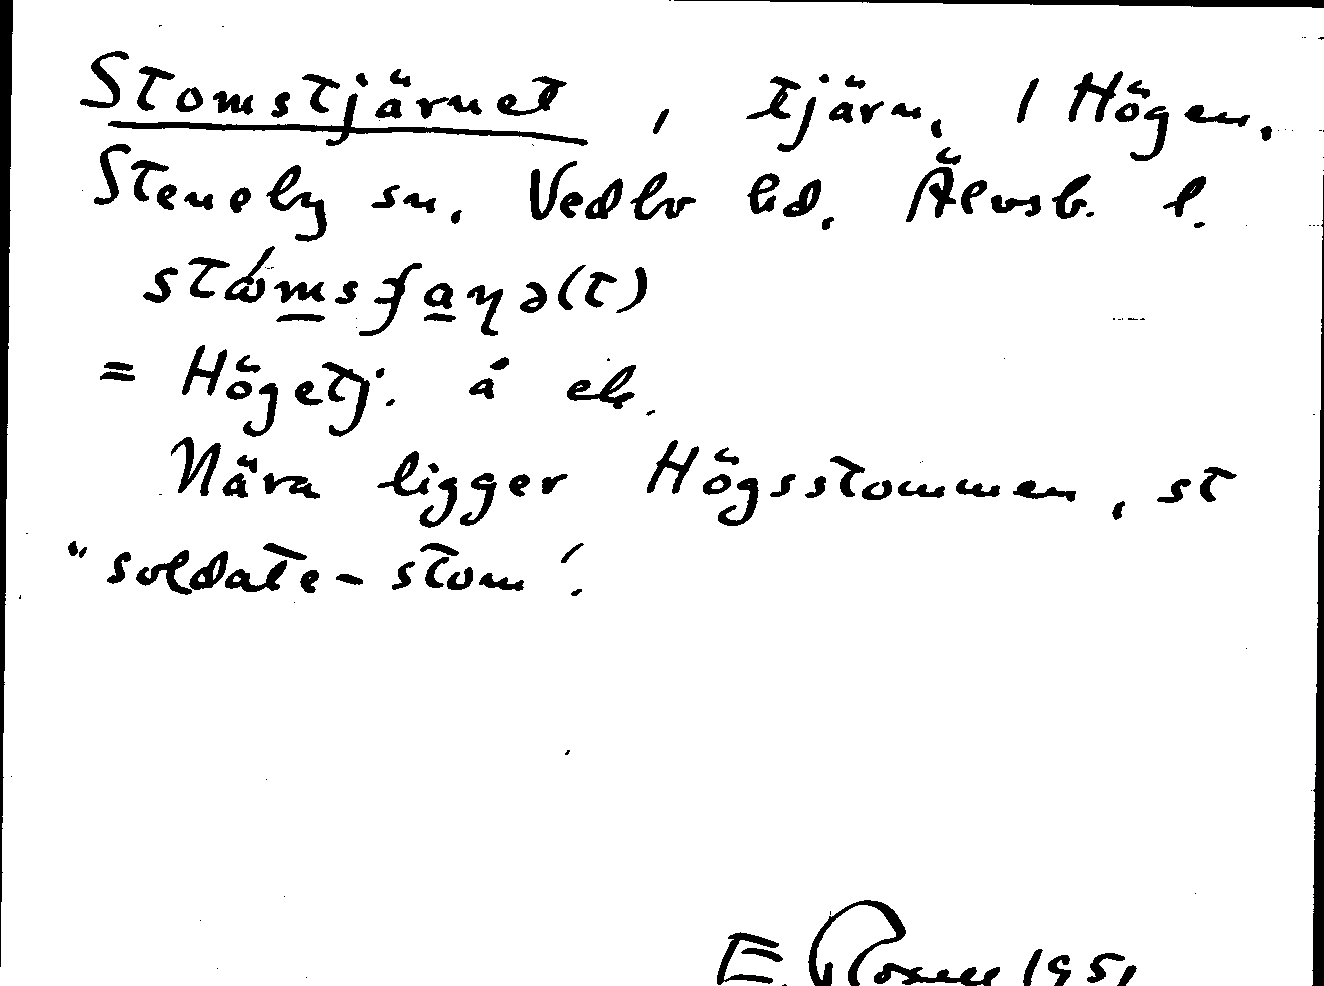 Stomstjärnet, tjärn, / Högen,
Steneby sn, Vedbo hd, Älvsb. l.
= Högetj. å ek.
Nära ligger Högsstommen, st
"soldate-stom".
E. Rosell 1951